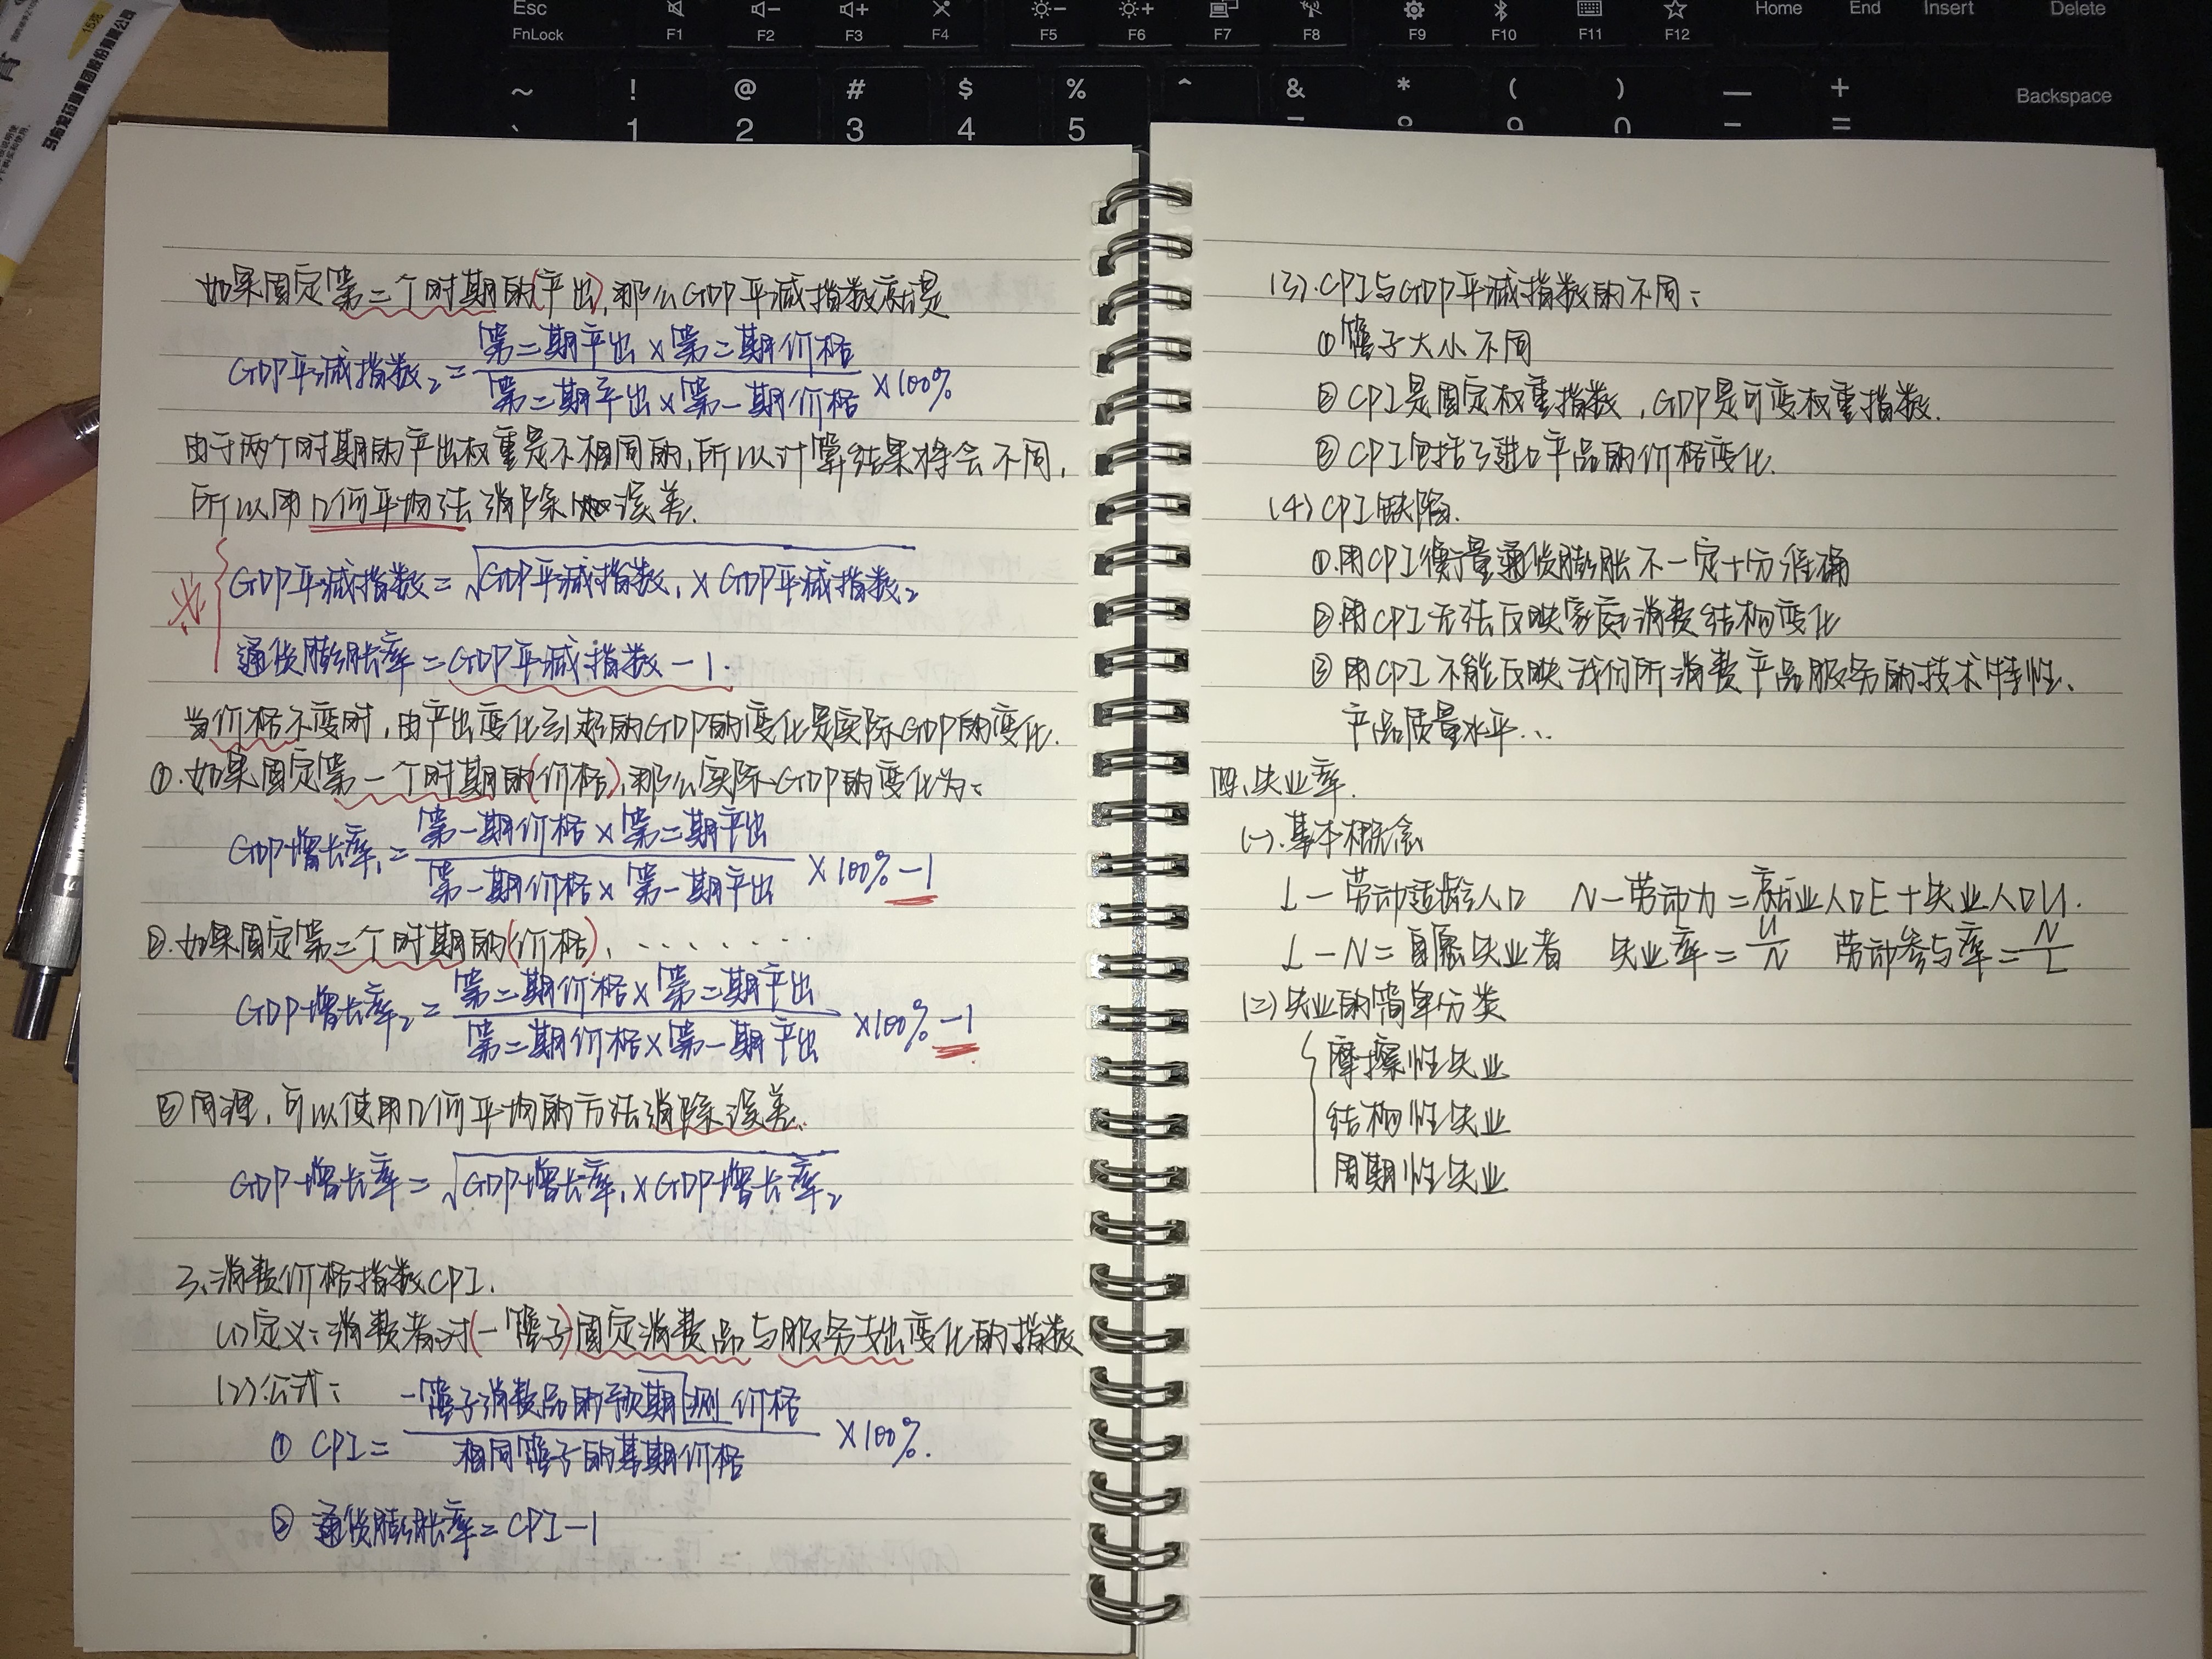 Esc
FnLock
F1 F2 F3 F4 F5 F6 F7 F8 F9 F10 F11 F12
Home End Insert Delete
~ ! @ # $ % ^ & * ( ) — +
` 1 2 3 4 5 - =
Backspace
如果固定第二个时期的(产出),那么GDP平减指数就是
GDP平减指数₂=第二期产出×第二期价格/第二期产出×第一期价格×100%
由于两个时期的产出权重是不相同的,所以计算结果将会不同,
所以用几何平均法消除误差.
GDP平减指数=√GDP平减指数₁×GDP平减指数₂
通货膨胀率=GDP平减指数-1.
当价格不变时,由产出变化引起的GDP的变化是实际GDP的变化.
①.如果固定第一个时期的(价格),那么实际GDP的变化为:
GDP增长率₁=第一期价格×第二期产出/第一期价格×第一期产出×100%-1
②.如果固定第二个时期的(价格),.......
GDP增长率₂=第二期价格×第二期产出/第二期价格×第一期产出×100%-1
③同理,可以使用几何平均的方法消除误差.
GDP增长率=√GDP增长率₁×GDP增长率₂
3、消费价格指数CPI.
(1)定义:消费者对(一篮子)固定消费品与服务支出变化的指数
(2)公式:
①CPI=一篮子消费品的预期测价格/相同篮子的基期价格×100%.
②通货膨胀率=CPI-1
(3).CPI与GDP平减指数的不同:
①篮子大小不同
②CPI是固定权重指数,GDP是可变权重指数.
③CPI包括了进口产品的价格变化.
(4)CPI缺陷.
①.用CPI衡量通货膨胀不一定十分准确
②用CPI无法反映家庭消费结构变化
③用CPI不能反映我们所消费产品服务的技术特性、
产品质量水平...
四、失业率.
(一).基本概念
L-劳动适龄人口 N-劳动力=就业人口E+失业人口U.
L-N=自愿失业者 失业率=U/N 劳动参与率=N/L
(二)失业的简单分类
摩擦性失业
结构性失业
周期性失业